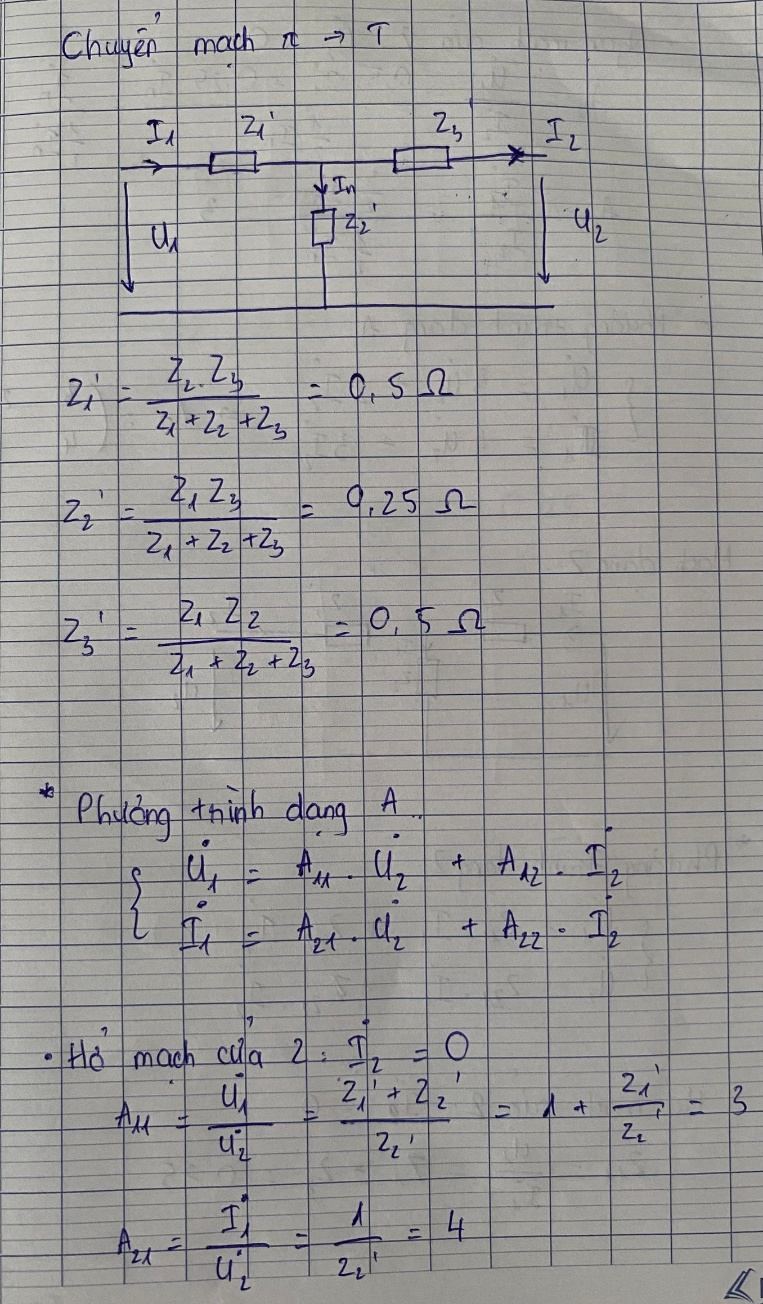 Chuyển mạch π → T
I₁ Z₁' Z₃' I₂
Iₙ
U₁ Z₂' U₂
Z₁' = Z₂.Z₃ / (Z₁+Z₂+Z₃) = 0,5 Ω
Z₂' = Z₁Z₃ / (Z₁+Z₂+Z₃) = 0,25 Ω
Z₃' = Z₁Z₂ / (Z₁+Z₂+Z₃) = 0,5 Ω
* Phương trình dạng A.
{ U̇₁ = A₁₁. U̇₂ + A₁₂. İ₂
İ₁ = A₂₁. U̇₂ + A₂₂. İ₂
• Hở mạch cửa 2: İ₂ = 0
A₁₁ = U̇₁ / U̇₂ = (Z₁' + Z₂') / Z₂' = 1 + Z₁' / Z₂' = 3
A₂₁ = İ₁ / U̇₂ = 1 / Z₂' = 4